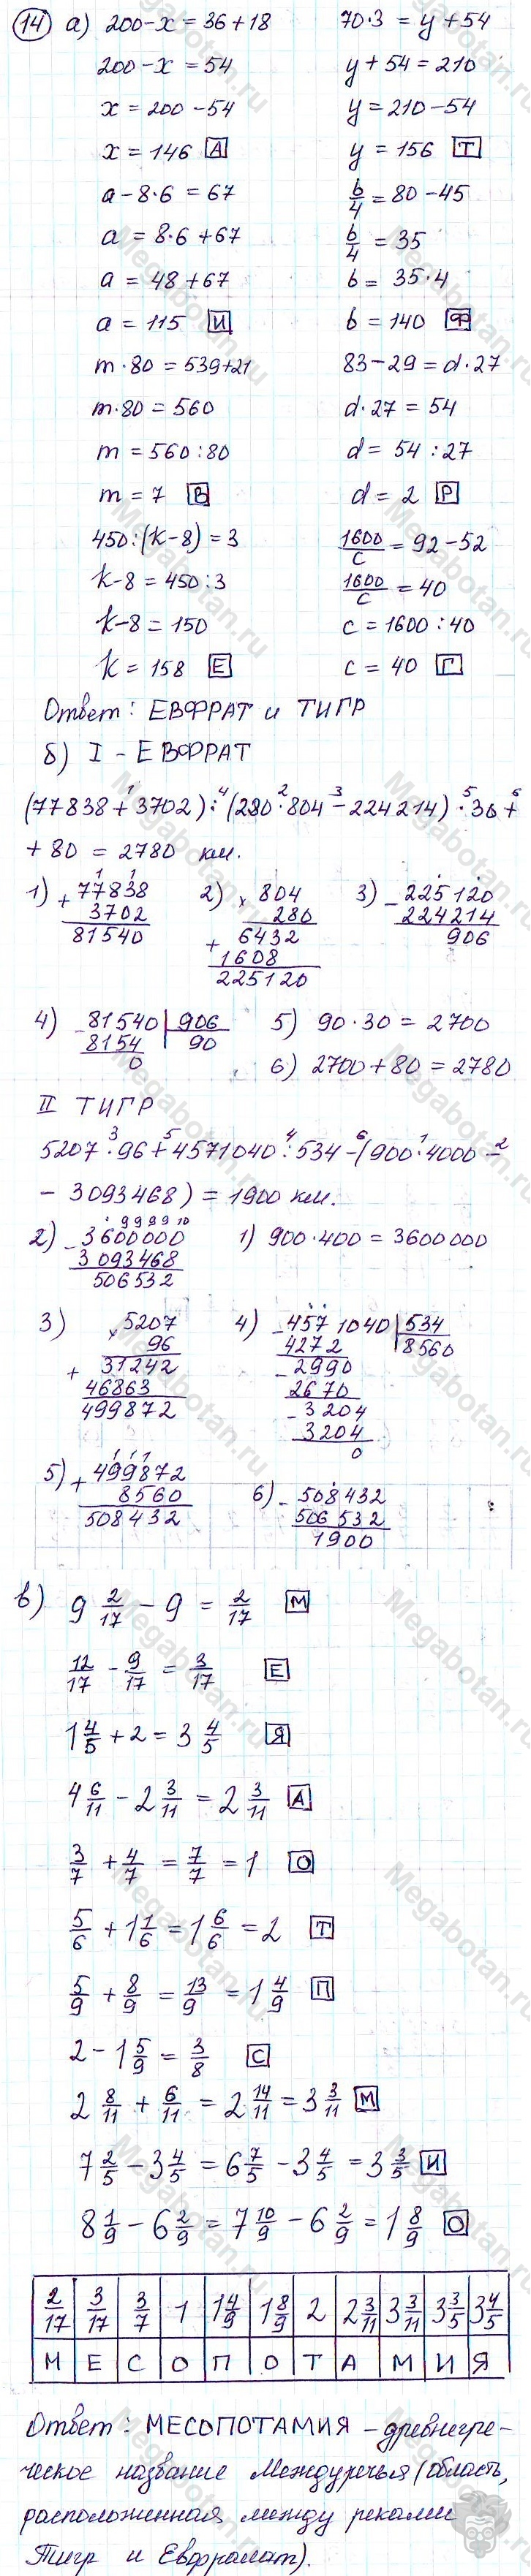 14 а) 200-x = 36+18 70·3 = y+54
200-x = 54 y+54 = 210
x = 200-54 y = 210-54
x = 146 А y = 156 Т
a-8·6 = 67 b/4 = 80-45
a = 8·6+67 b/4 = 35
a = 48+67 b = 35·4
a = 115 И b = 140 Ф
m·80 = 539+21 83-29 = d·27
m·80 = 560 d·27 = 54
m = 560:80 d = 54:27
m = 7 В d = 2 Р
450:(k-8) = 3 1600/c = 92-52
k-8 = 450:3 1600/c = 40
k-8 = 150 c = 1600:40
k = 158 Е c = 40 Г
Ответ: ЕВФРАТ и ТИГР
б) I - ЕВФРАТ
(77838+3702):(280·804-224214)·30+
+80 = 2780 км.
1) + 77838 2) x 804 3) - 225120
3702 280 224214
81540 + 6432 906
1608
225120
4) - 81540 906 5) 90·30 = 2700
8154 90
0 6) 2700+80 = 2780
II ТИГР
5207·96+4571040:534-(900·4000-
-3093468) = 1900 км.
2) - 3600000 1) 900·400 = 3600000
3093468
506532
3) x 5207 4) - 4571040 534
96 4272 8560
+ 31242 - 2990
46863 2670
499872 - 3204
3204
0
5) + 499872 6) - 508432
8560 506532
508432 1900
в) 9 2/17 - 9 = 2/17 М
12/17 - 9/17 = 3/17 Е
1 4/5 + 2 = 3 4/5 Я
4 6/11 - 2 3/11 = 2 3/11 А
3/7 + 4/7 = 7/7 = 1 О
5/6 + 1 1/6 = 1 6/6 = 2 Т
5/9 + 8/9 = 13/9 = 1 4/9 П
2 - 1 5/9 = 3/8 С
2 8/11 + 6/11 = 2 14/11 = 3 3/11 М
7 2/5 - 3 4/5 = 6 7/5 - 3 4/5 = 3 3/5 И
8 1/9 - 6 2/9 = 7 10/9 - 6 2/9 = 1 8/9 О
2/17 3/17 3/7 1 1 4/9 1 8/9 2 2 3/11 3 3/11 3 3/5 3 4/5
М Е С О П О Т А М И Я
Ответ: МЕСОПОТАМИЯ - древнегре-
ческое название Междуречья (область,
расположенная между реками
Тигр и Евфрат).
Megabotan.ru